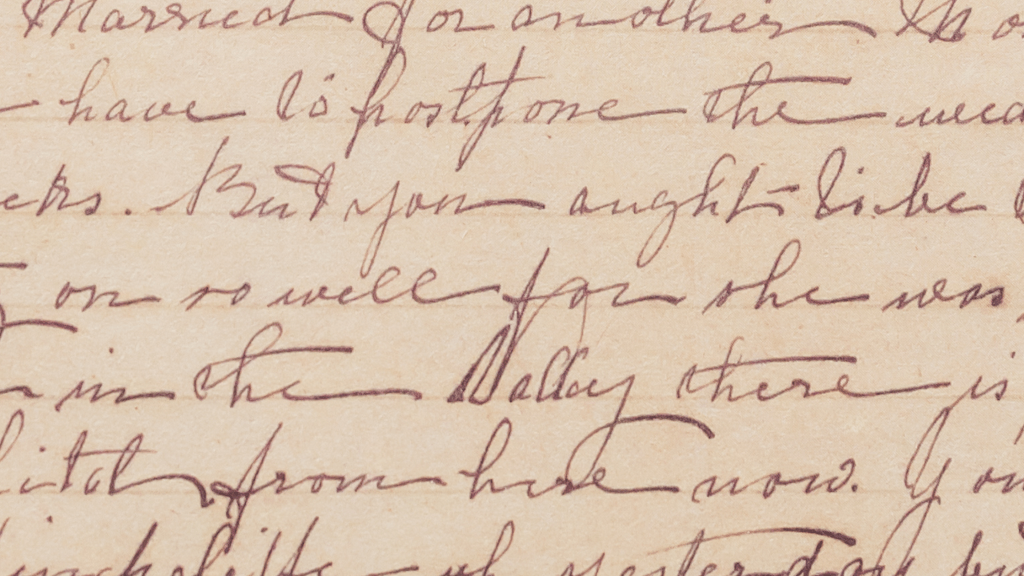 Married for another Mo
have to postpone the wed
eks. But you aught to be
on so well for she was
in the Valley there is
from here now. You
yesterday